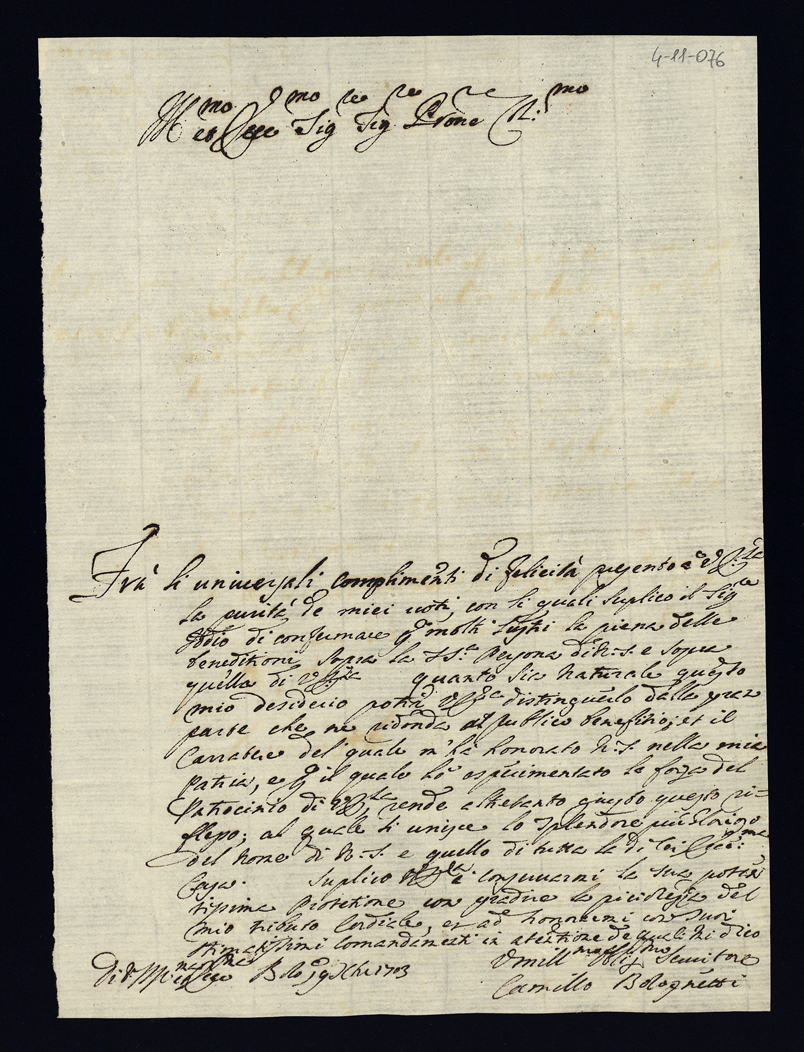 4-11-076
Ill.mo et Ecc.mo Sig.re Sig.re Prone
Frà li universali complimenti di felicità presento à
la purità de miei voti, con li quali suplico il Sig.re
Iddio di confirmare molti lustri la piena delle
beneditioni sopra la S.ta Persona di N.S. e sopra
quella di quanto sia naturale questo
mio desiderio potrà distinguerlo dalla gran
parte che ne ridonda al publico benefitio; et il
Carratere del quale m'hà honorato N.S. nella mia
Patria, e il quale hò esperimentato la forza del
Patrocinio di rende altretanto giusto questo ri=
flesso; al quale si unisce lo splendore più glorioso
del nome di N.S. e quello di tutta la di lei Ecc.ma
Casa. Suplico conservarmi la sua poten
tissima Protetione con gradire la picciolezza del
mio tributo Cordiale, et ad honorarmi con suoi
stimatissimi comandamenti in atentione de quali mi dico
Di V. Ill.ma Bol.a 19 Xbre 1703
Umill.mo Servitore
Camillo Bolognetti